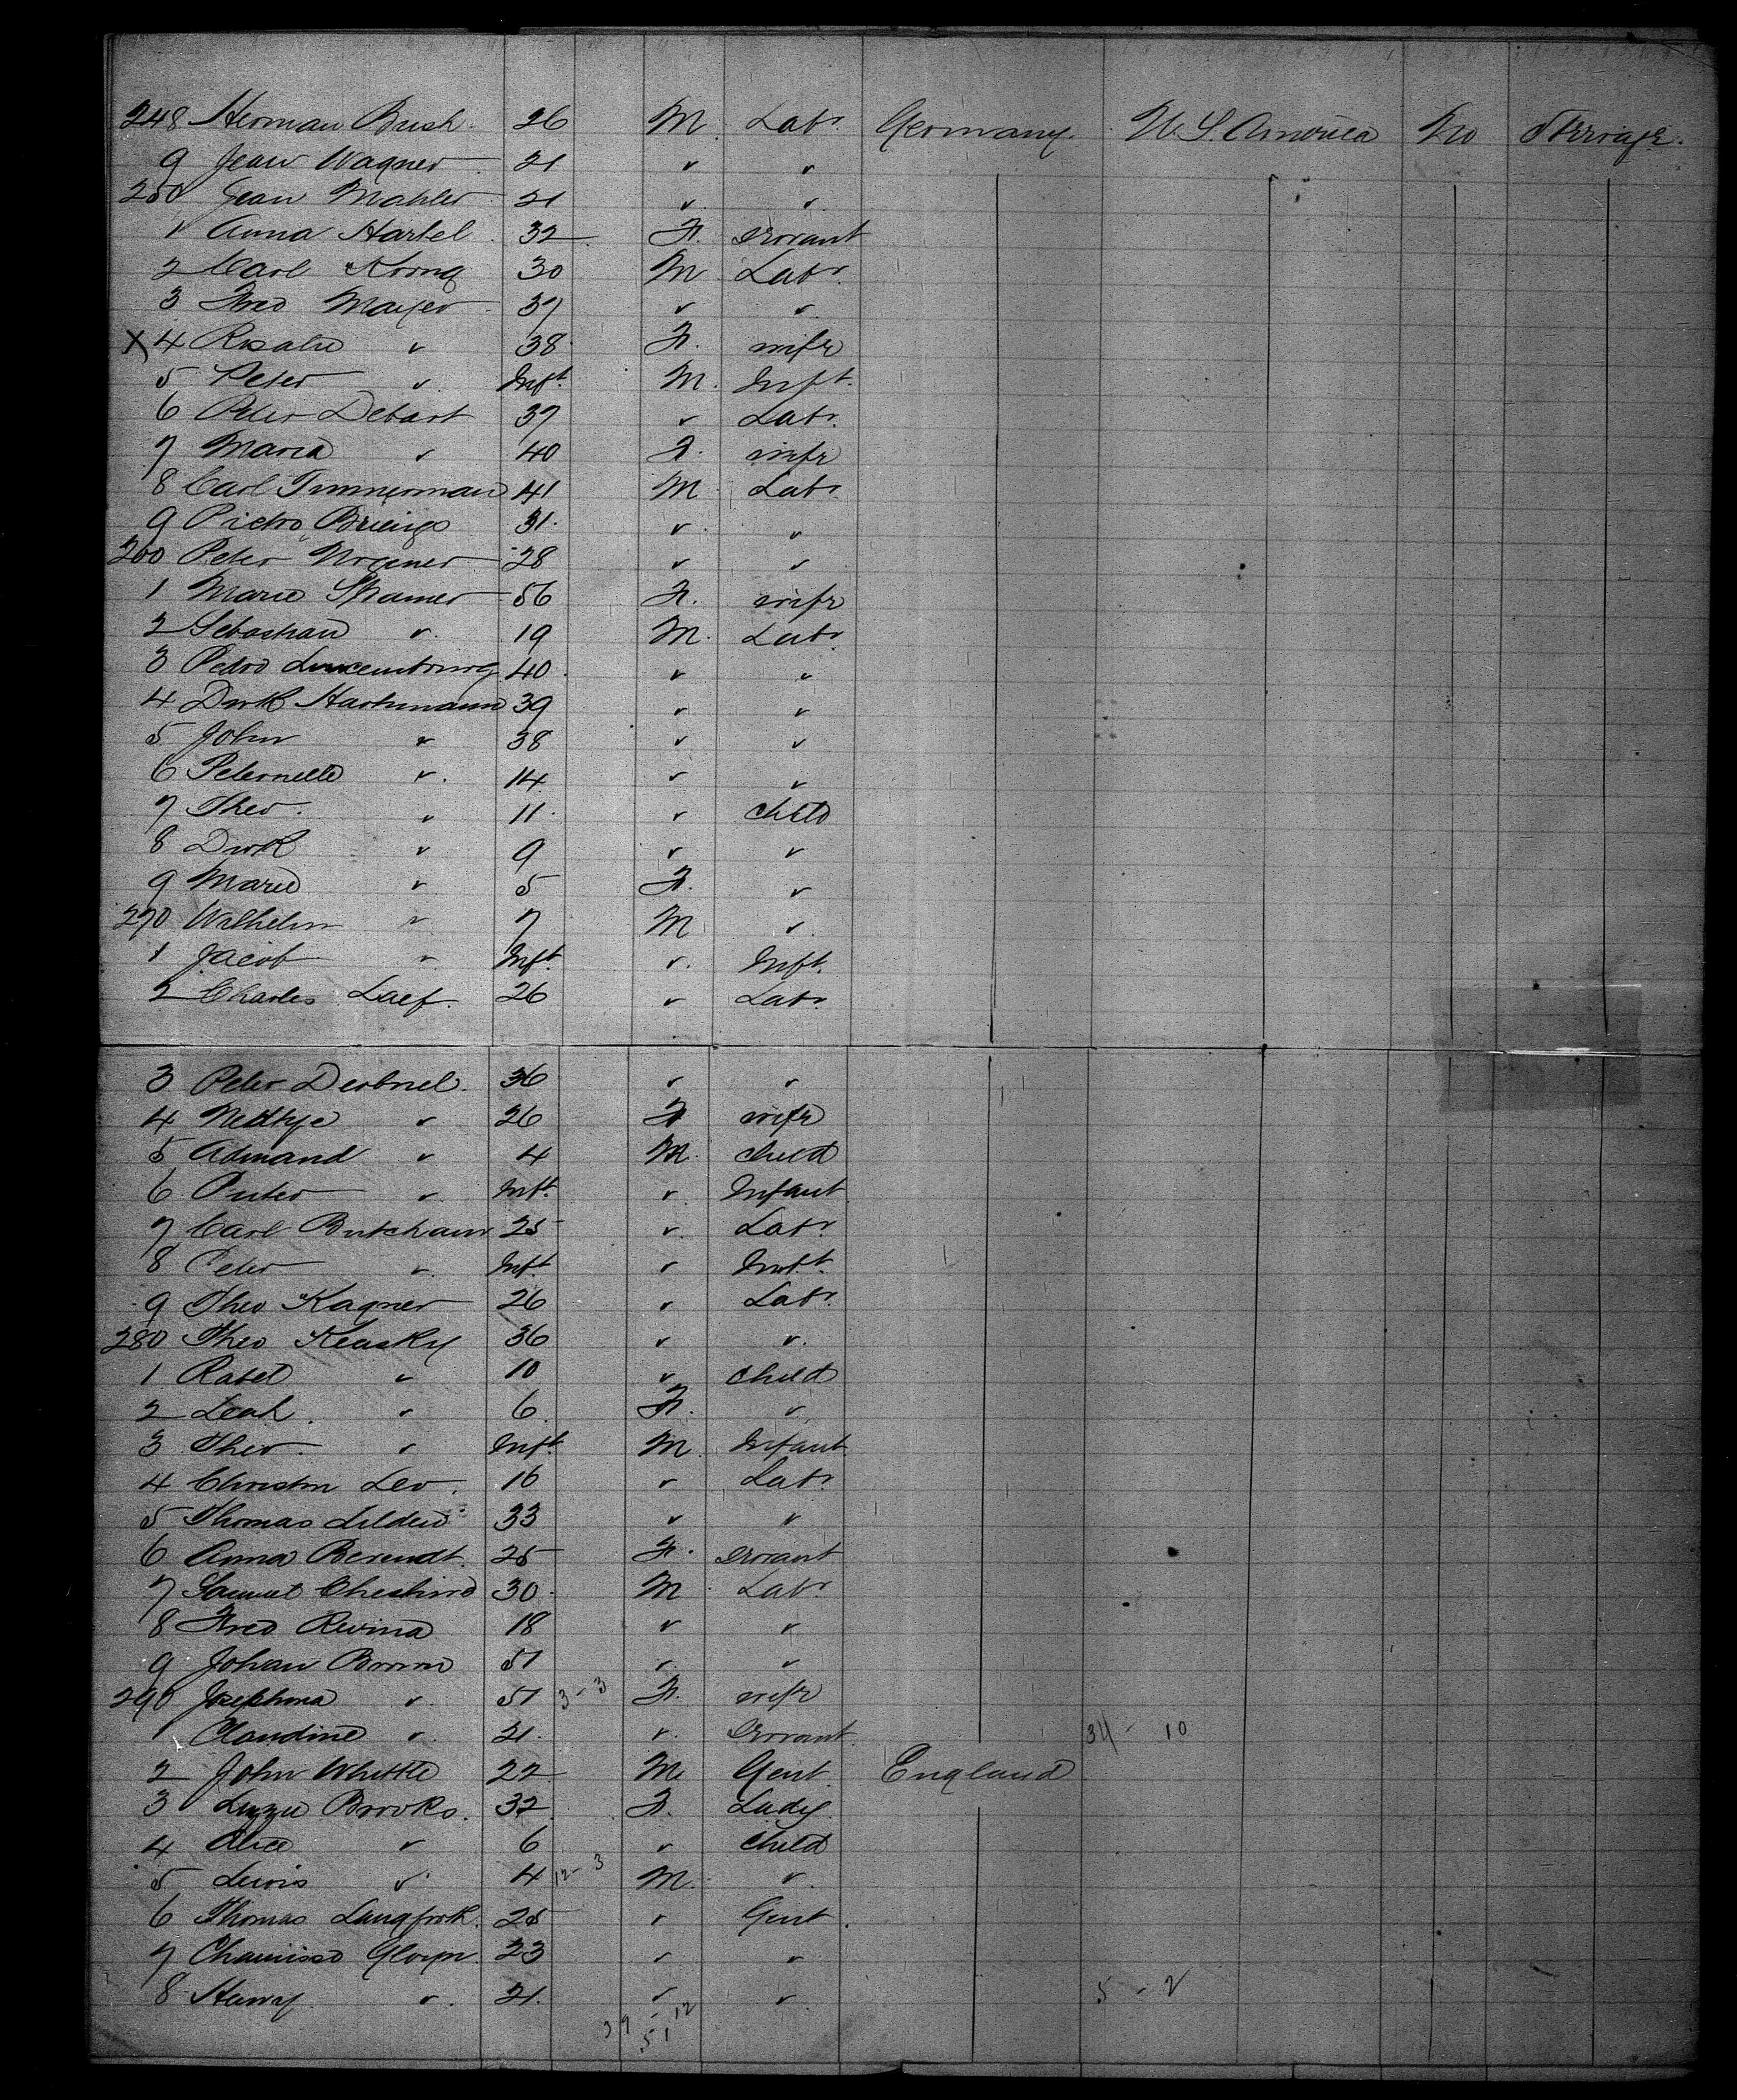 248 Herman Bush. 26 M. Labr. Germany. U.S. America No Steerage.
9 Jean Wagner 21 " "
250 Jean Mahler 21 " "
1 Anna Hartel 32 F. Servant
2 Carl 30 M Labr.
3 Fred Mayer 37 " "
X 4 Rosalie " 38 F. wife
5 Peter " Inft. M. Inft.
6 Peter Debart 37 " Labr.
7 Maria " 40 F. wife
8 Carl Timmerman 41 M Labr
9 Pietro 31. " "
260 Peter 28 " "
1 Marie 56 F. wife
2 Sebastian " 19 M. Labr.
3 Pedro Luxembourg 40 " "
4 Dirk Hartmann 39 " "
5 John " 38 " "
6 Peternelle " 14 " "
7 Theo. " 11. " child
8 Dirk " 9 " "
9 Marie " 5 F. "
270 Wilhelm " 7 M "
1 Jacob " Inft. " Inft.
2 Charles Laef. 26 " Labr.
3 Peter 36 " "
4 " 26 F wife
5 Admand " 4 M. child
6 " Inft. " Infant
7 Carl 25 " Labr.
8 Peter " Inft. " Inft.
9 Theo Kagner 26 " Labr.
280 Theo Keasky 36 " "
1 Rabel " 10 " child
2 Leah. " 6. F. "
3 Theo. " Inft. M. Infant
4 Leo. 16 " Labr.
5 Thomas 33 " "
6 Anna Berendt. 25 F. Servant
7 Samuel Cheshire 30. M Labr
8 Fred Rivina 18 " "
9 Johan Brown 51 " "
290 Josephina " 51 3-3 F. wife
1 Claudine " 21. " Servant 34 - 10
2 John Whittle 22 M Gent. England
3 Lizzie Brooks. 32 F. Lady.
4 Alice " 6 " child
5 Lewis " 4 12-3 M. "
6 Thomas 25 " Gent.
7 Chamisso 23 " "
8 Harry " 21. " " 5 - 2
39 - 12
51